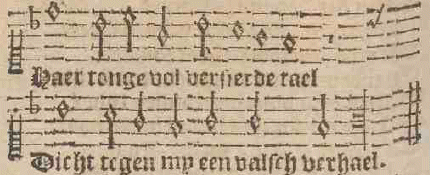 Haer tonge vol versierde tael
Dicht tegen my een valsch verhael.